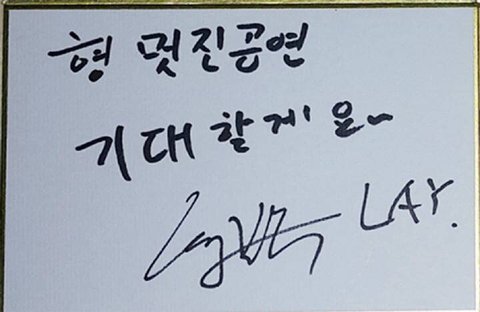 형 멋진공연
기대할게요~
LAY.